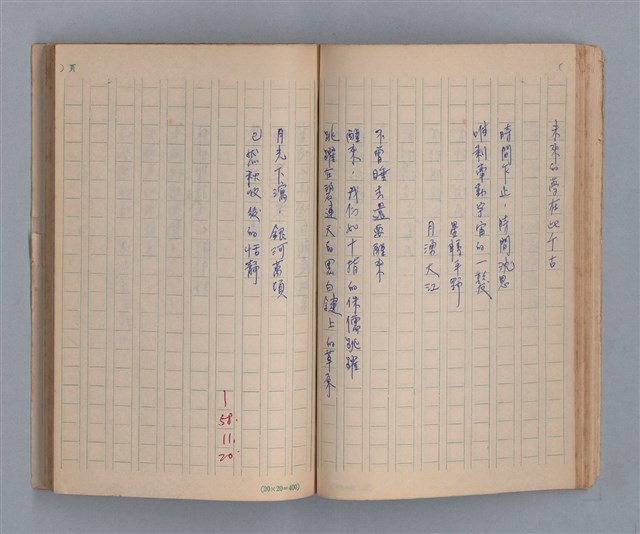 未來的夢在此千古
時間下止，時間沈思
唯剩牽動宇宙的一髮
星縣平野
月湧大江
不曾睡去還要醒來
醒來，我們如十指的侏儒跳躍
跳躍在碧連天的黑白鍵上的草
月光下瀉，銀河萬頃
已然秋收後的恬靜
58.
11.
20.
頁
(20×20=400)